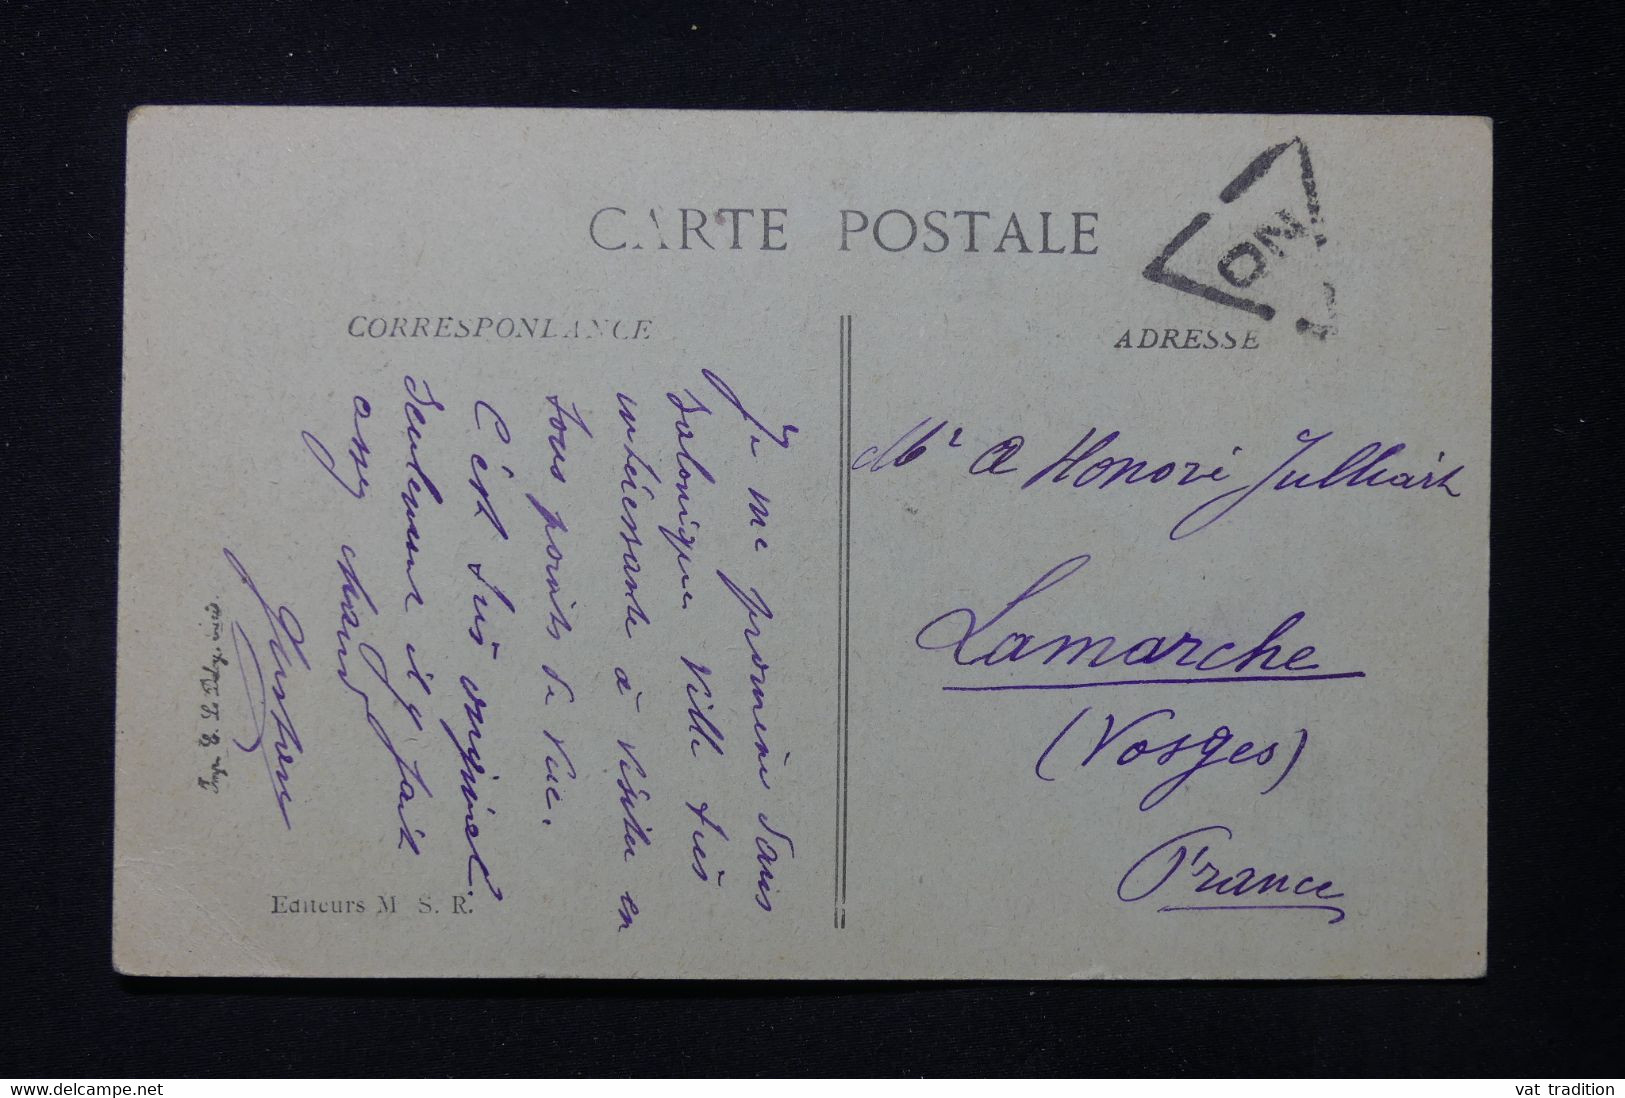 CARTE POSTALE
ON
CORRESPONDANCE
ADRESSE
Je me promène dans
Salonique. Ville très
intéressante à visiter en
tous points de vue.
C'est très original.
Seulement il y fait
assez chaud
Mr Honoré
Lamarche
(Vosges)
France
Editeurs M S. R.
www.delcampe.net
vat tradition